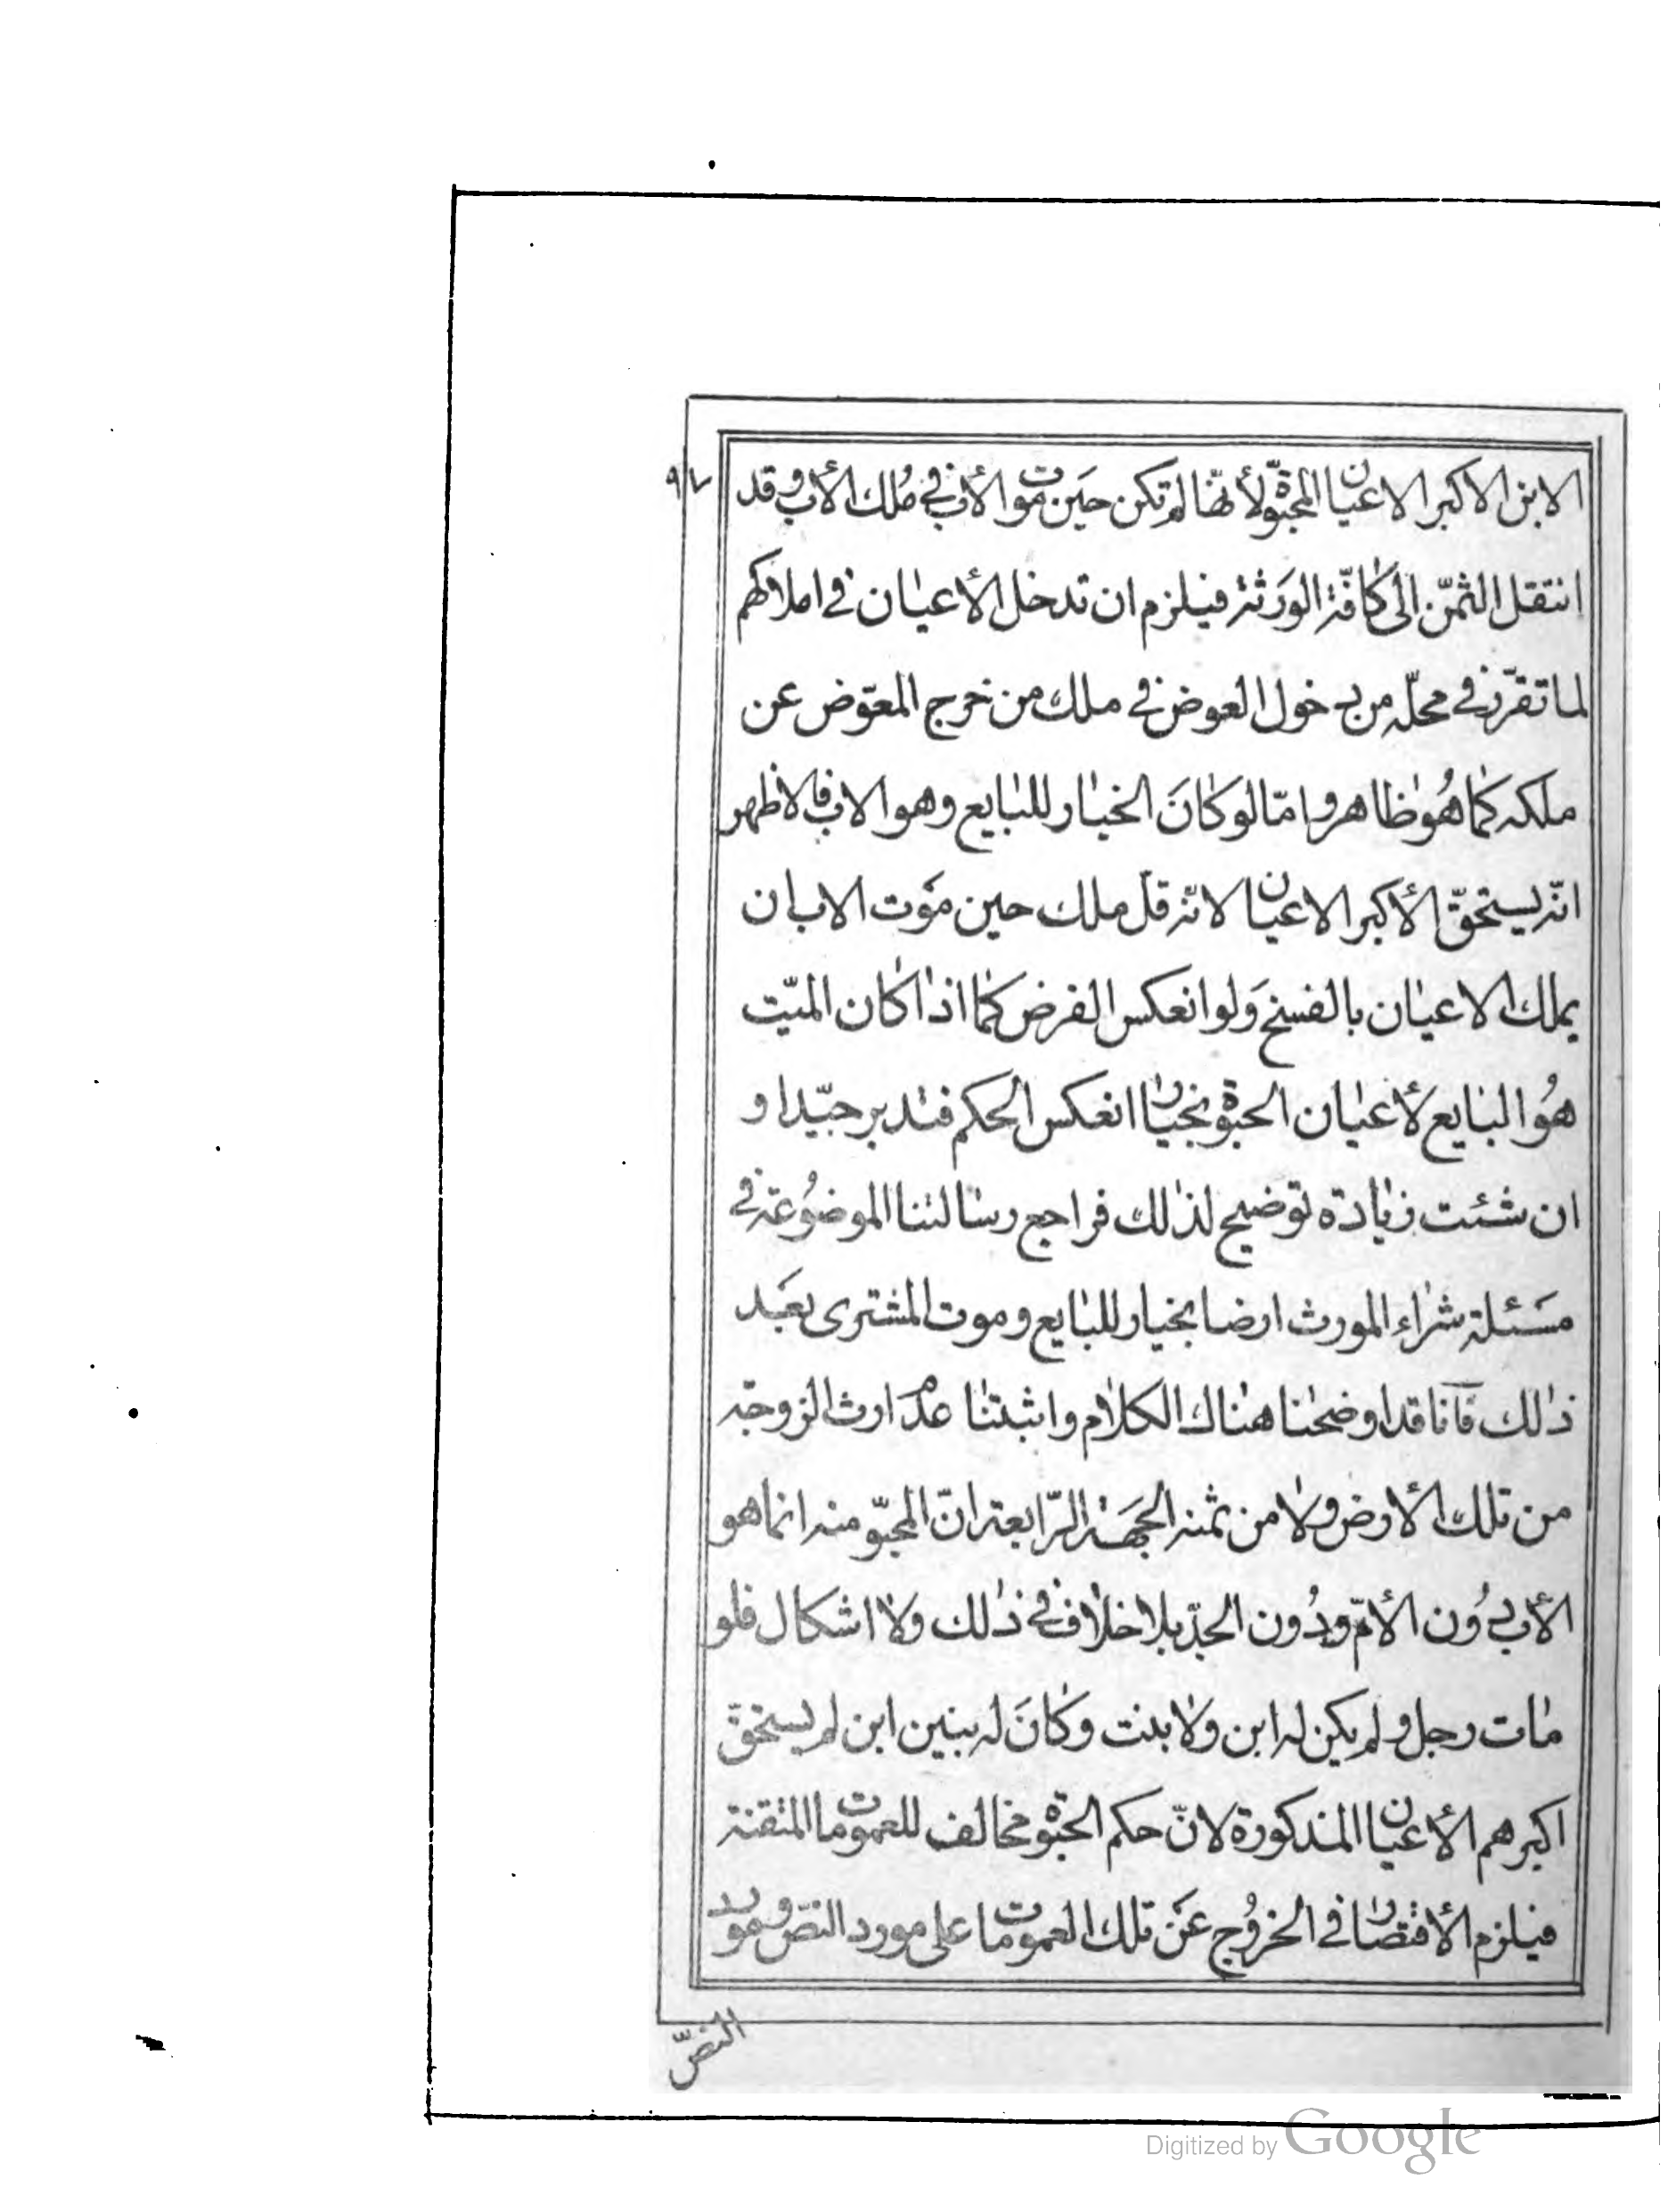 ٩٧
الابن الاكبر الاعيان المحبوّة لأنّها لم تكن حين موت الأب في ملك الأب وقد
انتقل الثمن الى كافّة الورثة فيلزم ان تدخل الأعيان في املاكهم
لما تقرّر في محلّه من دخول العوض في ملك من خرج المعوّض عن
ملكه كما هو ظاهر وامّا لو كان الخيار للبايع وهو الاب فالاظهر
انّه يستحقّ الأكبر الاعيان لانّه قد ملك حين موت الاب ان
يملك الاعيان بالفسخ ولو انعكس الفرض كما اذا كان الميّت
هو البايع لأعيان الحبوة بخيار انعكس الحكم فتدبر جيّدا و
ان شئت زيادة توضيح لذلك فراجع رسالتنا الموضوعة في
مسئلة شراء المورث ارضا بخيار للبايع وموت المشترى بعد
ذلك فانا قد اوضحنا هناك الكلام واثبتنا عدم ارث الزوجة
من تلك الأرض ولا من ثمنه الجهة الرّابعة انّ المحبوّ منه انما هو
الأب دون الأمّ ودون الجدّ بلا خلاف في ذلك ولا اشكال فلو
مات رجل ولم يكن له ابن ولا بنت وكان له بنين ابن لم يستحقّ
اكبرهم الأعيان المذكورة لانّ حكم الحبوة مخالف للعمومات المتقنة
فيلزم الأقتصار في الخروج عن تلك العمومات على مورد النصّ ومورد
النصّ
Digitized by Google